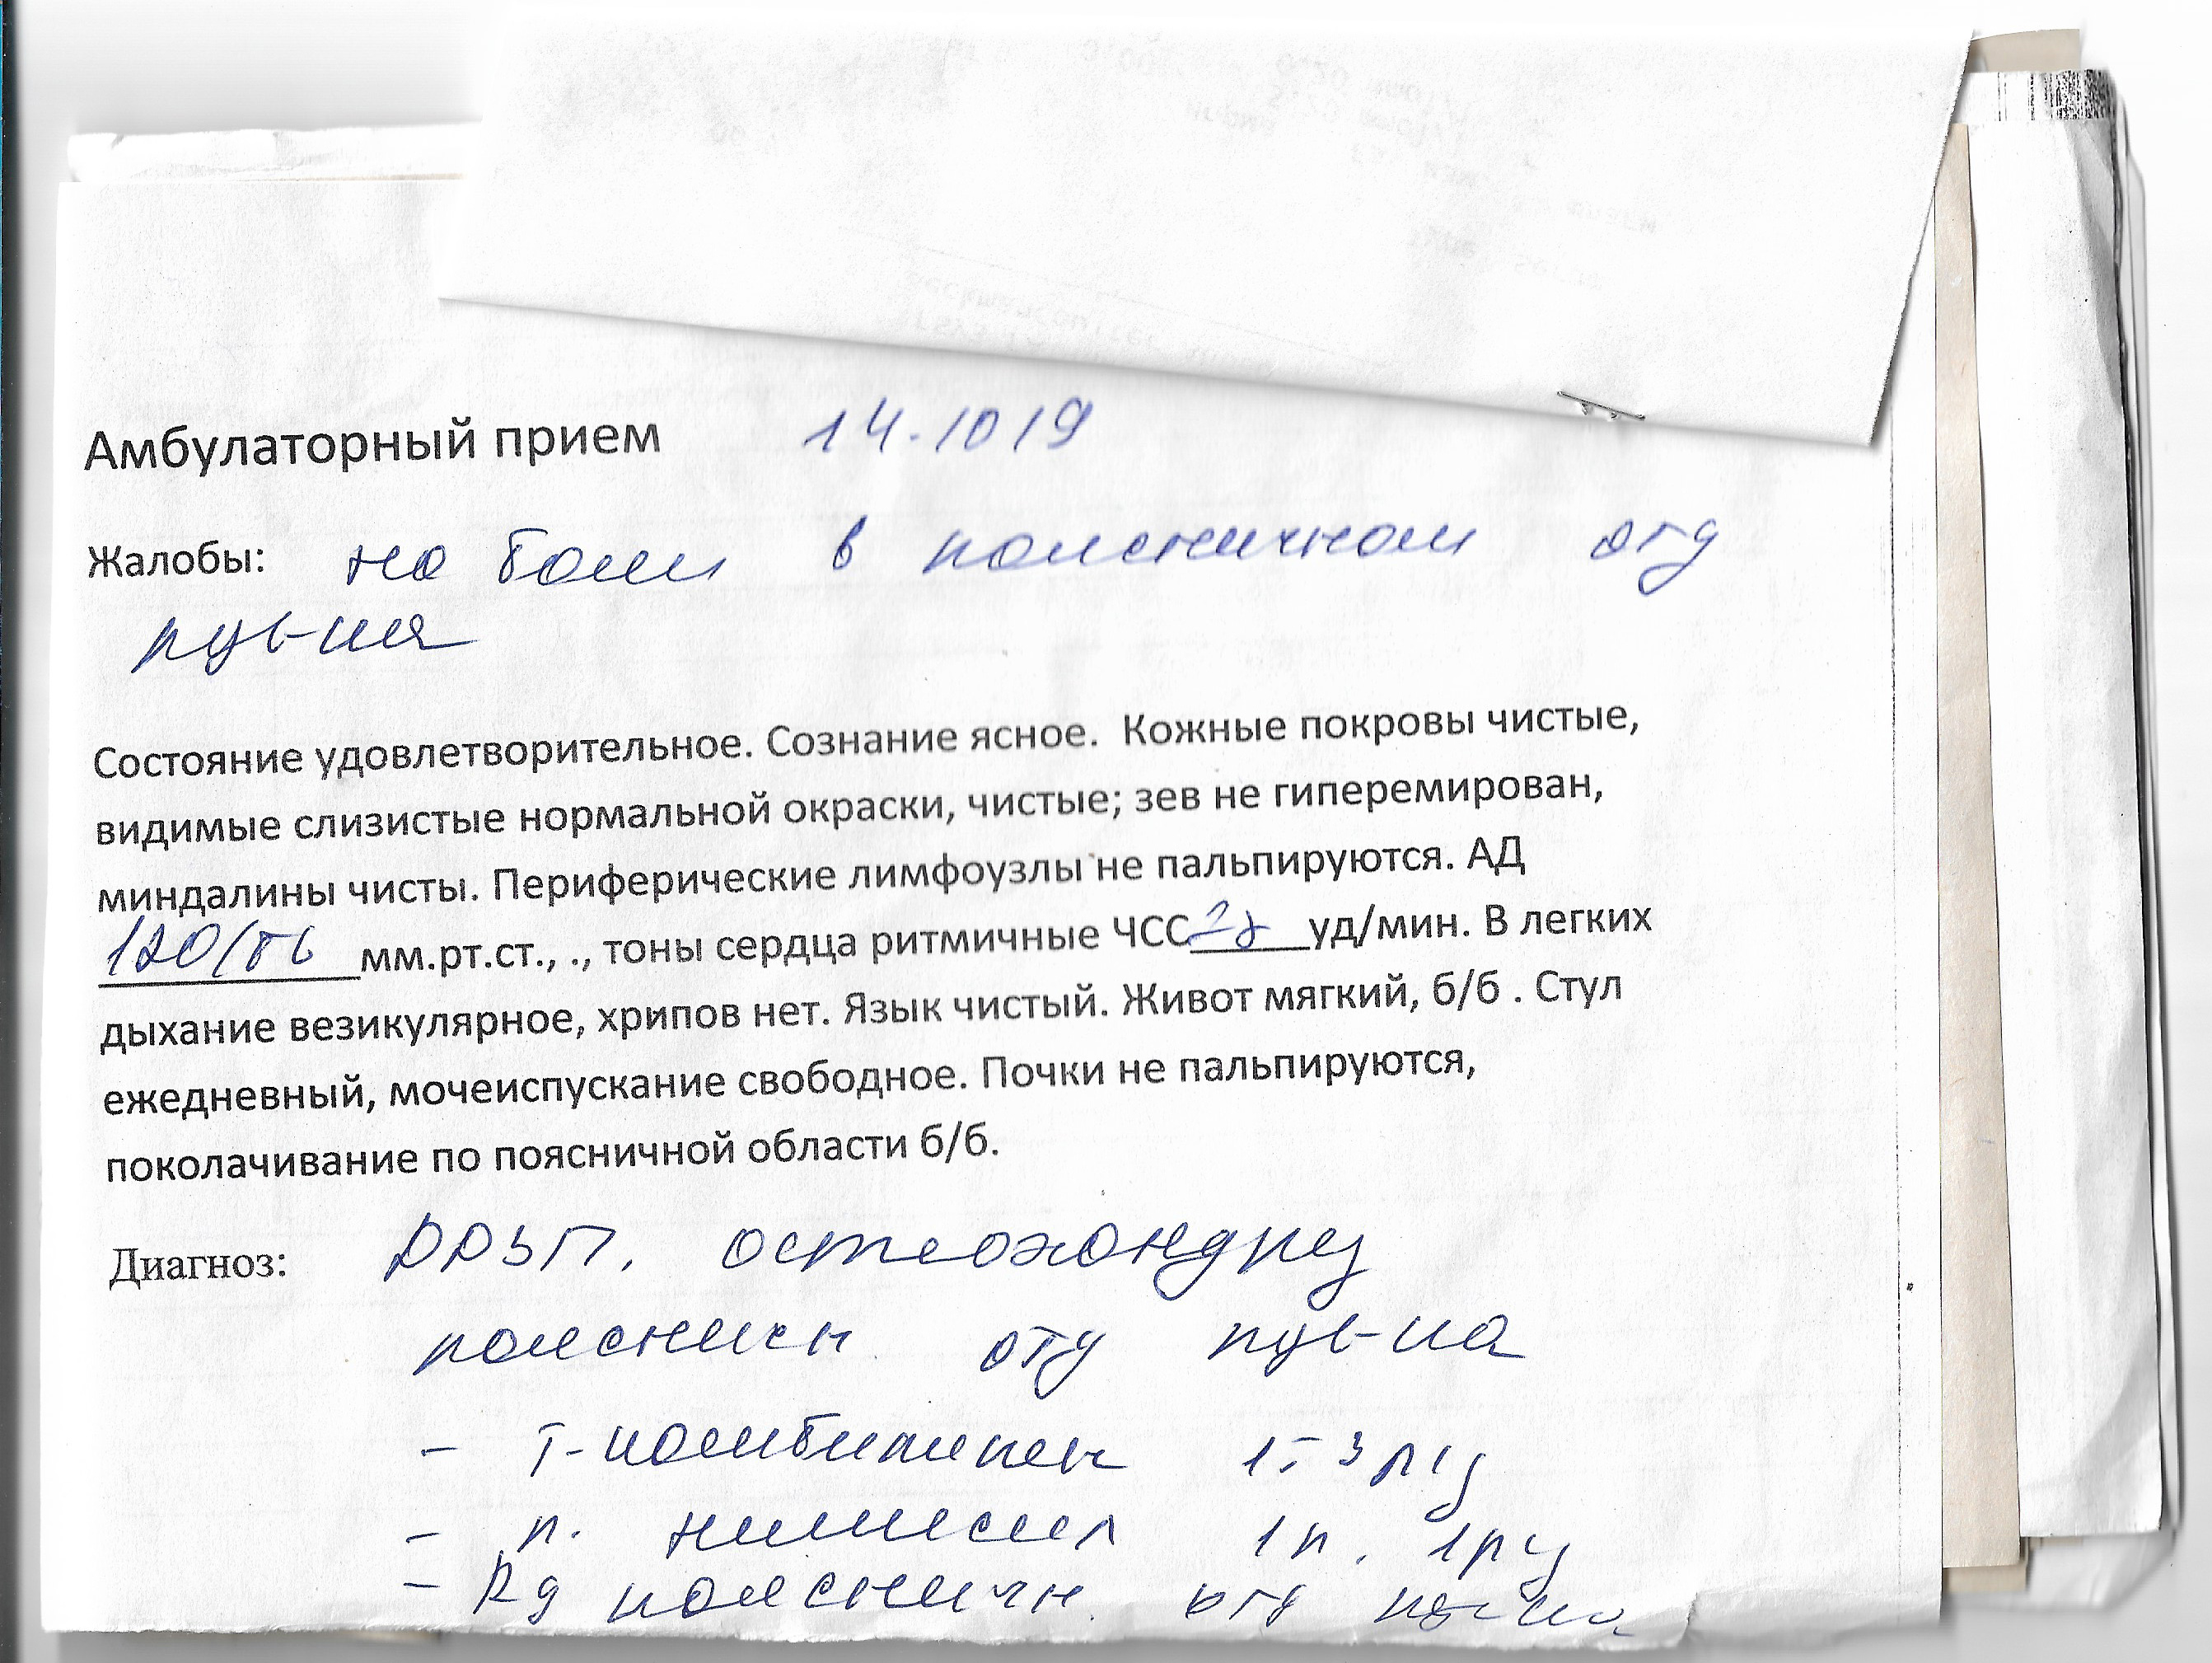 Амбулаторный прием 14.10 19
Жалобы: на боли в поясничном отд
Состояние удовлетворительное. Сознание ясное. Кожные покровы чистые,
видимые слизистые нормальной окраски, чистые; зев не гиперемирован,
миндалины чисты. Периферические лимфоузлы не пальпируются. АД
мм.рт.ст., ., тоны сердца ритмичные ЧСС уд/мин. В легких
дыхание везикулярное, хрипов нет. Язык чистый. Живот мягкий, б/б . Стул
ежедневный, мочеиспускание свободное. Почки не пальпируются,
поколачивание по поясничной области б/б.
Диагноз: ДДЗП. остеохондроз
пояснич отд п-ка
- Т-комбилипен 1т 3 р/д
- п. нимесил 1 п. 1 р д
- Rg пояснично отд